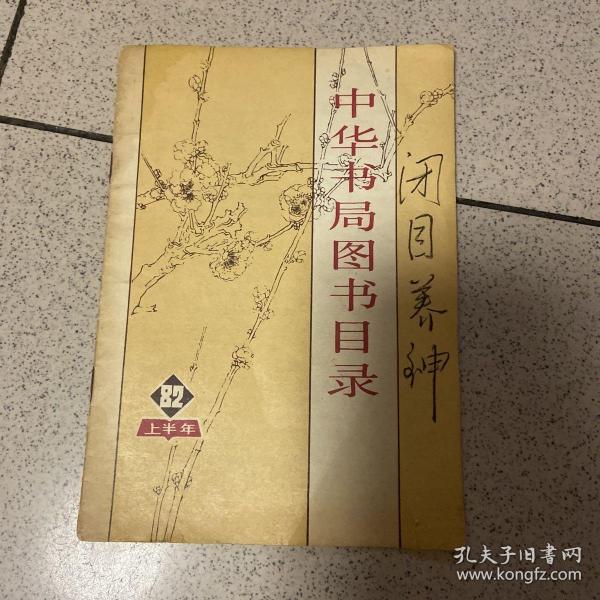 中华书局图书目录
闭目养神
82
上半年
孔夫子旧书网
www.kongfz.com